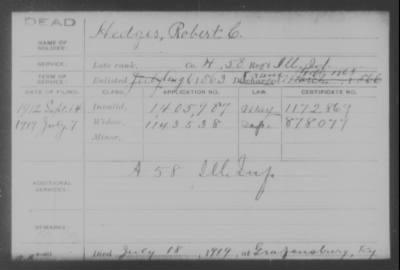 DEAD
Hedges, Robert C.
NAME OF SOLDIER:
SERVICE: Late rank, Co. H, 58 Reg't Ill. Inf.
TERM OF SERVICE: Enlisted 1863 Discharged 1866
DATE OF FILING. CLASS. APPLICATION NO. LAW. CERTIFICATE NO.
1912 Sept. 14 Invalid, 1405987 1172869
1919 July 7 Widow, 1143538 878077
Minor,
A 58 Ill. Inf.
ADDITIONAL SERVICES:
REMARKS:
Died July 18, 1919, at Grapensburg, Ky